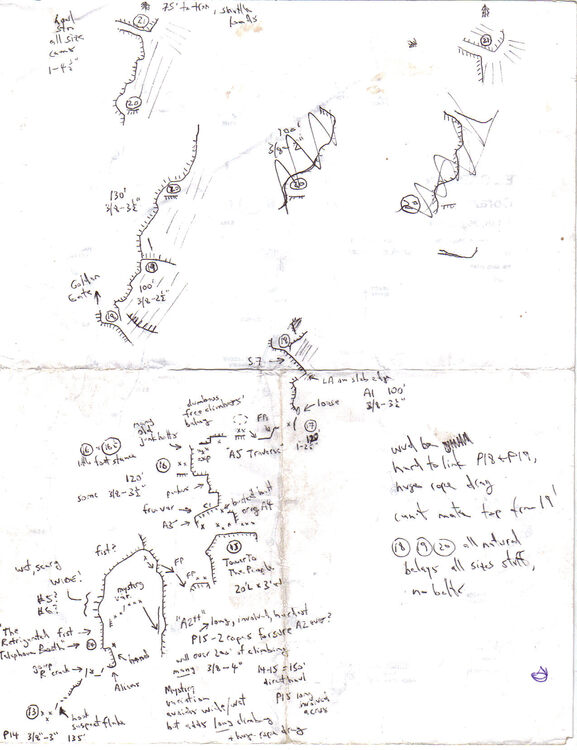 75' to
21
all size
cams
20
100'
3/8-
20
21
20
130'
3/8-3½"
20
19
Golden
Gate
100'
3/8-2½"
18
18
5.7
LA on slab edge
loose
A1 100'
3/8-3½"
17
120'
1-2½"
dumbass
free climbers'
belay
many
old
junk bolts
"A5 Traverse"
16 = 16½
little foot stance
16
120'
some 3/8-3½"
A3
busted bolt
orig. A4
15
Tower To
The People
fist?
FP
FP
wet, scary
WIDE!
#5?
#6?
mystery
var.
"The
Refrigerated fist
Telephone Booth"
14
Friends
crack
Aliens
13
host
suspect flake
P14 3/8-3" 135'
"A2++"
long, involved, hardest
P15-2 ropes for sure A2 over?
well over 200' of climbing
many 3/8-4"
14-15=150'
direct haul
Mystery
variation
avoids wide/wet
but adds long climbing
+ huge rope drag
P15 long
involved
across
would be
hard to link P18 & P19,
huge rope drag
can't make top from 19!
18 19 20 all natural
belays all sizes stuff,
no bolts